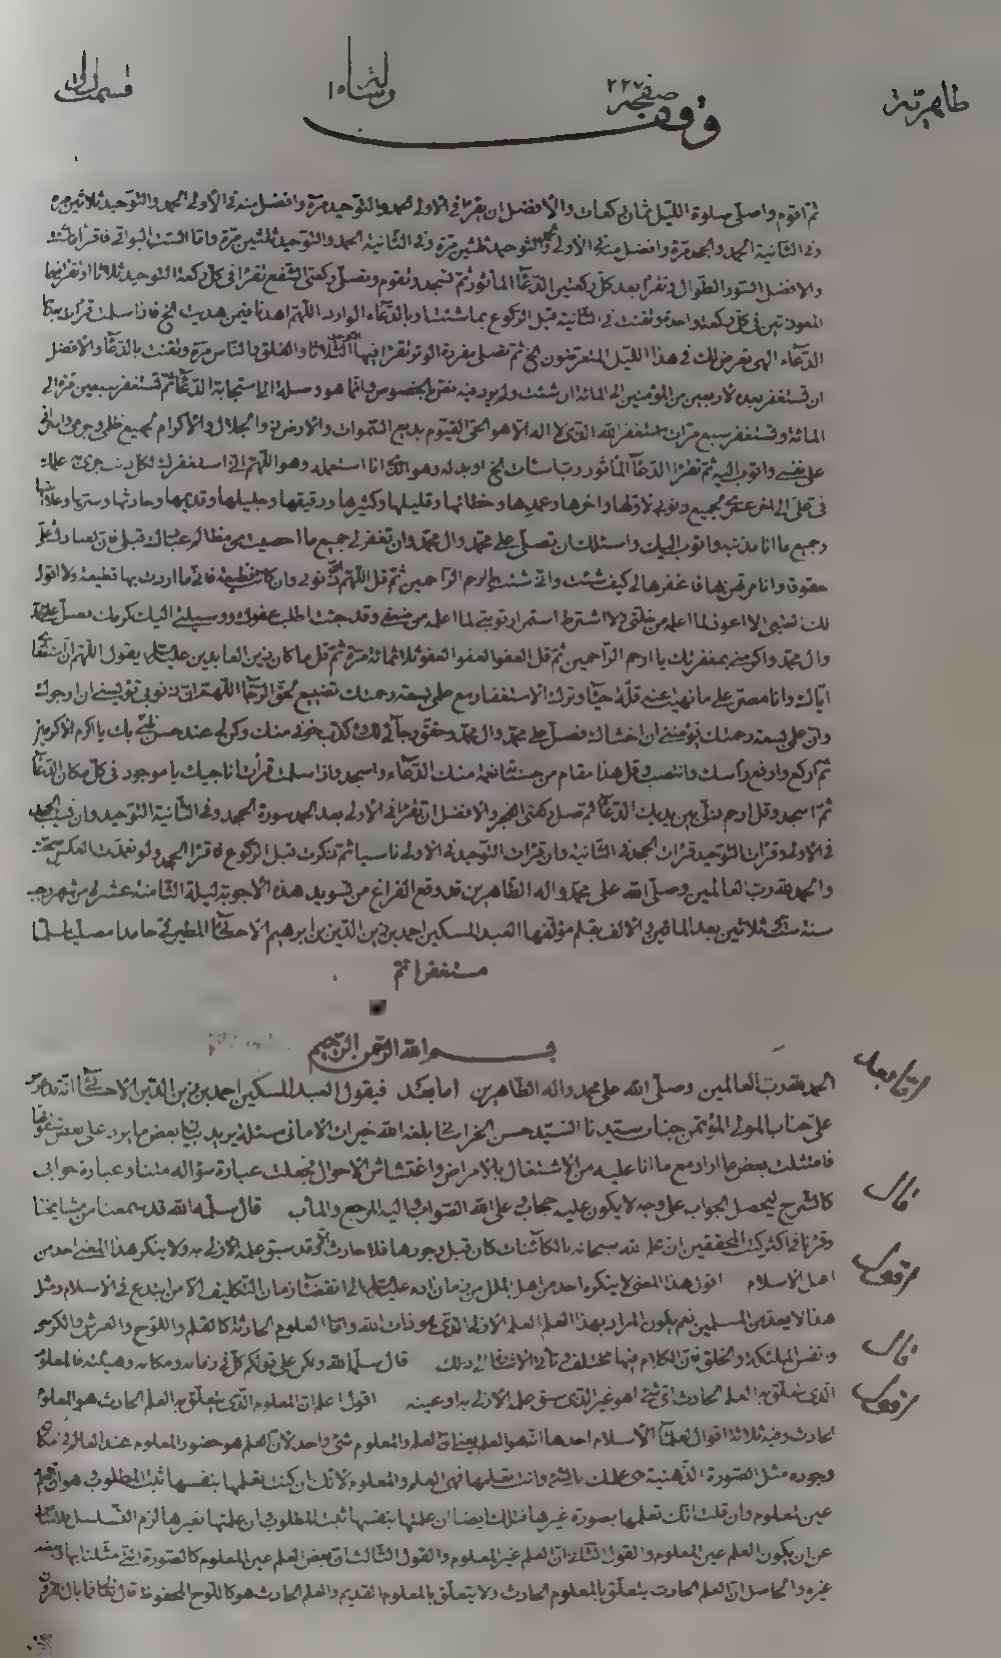 طاهرية
صفحه ٢٢٧
رسالة ١٥
قسمت
وقف
ثم اقوم واصلي صلوة الليل ثمان ركعات والأفضل ان يقرء في الاولى الحمد والتوحيد مرة وافضل منه في الأولى الحمد والتوحيد ثلاثين مرة
وفي الثانية الحمد والجحد مرة وافضل منه في الأولى الحمد والتوحيد ثلثين مرة وفي الثانية الحمد والتوحيد ثلثين مرة واما الست البواقي فاقرء
والافضل السور الطوال وتقرء بعد كل ركعتين الدعاء المأثور ثم تسجد وتقوم وتصلي ركعتي الشفع تقرء في كل ركعة التوحيد ثلاثا او تقرء فيهما
المعوذتين في كل ركعة واحدة وتقنت في الثانية قبل الركوع بما شئت وبالدعاء الوارد اللهم اهدنا فيمن هديت الخ فاذا سلمت قرأت
الدعاء الهي تعرض لك في هذا الليل المتعرضون الخ ثم تصلي مفردة الوتر تقرء فيها التوحيد ثلاثا والفلق والناس مرة وتقنت بالدعاء والأفضل
ان تستغفر بعده لاربعين من المؤمنين الى المائة ان شئت ولم يرد فيه نص بالخصوص وانما هو وصلة الى استجابة الدعاء ثم تستغفر سبعين مرة الى
المائة وتستغفر سبع مرات استغفر الله الذي لا اله الا هو الحي القيوم بديع السموات والارض ذو الجلال والاكرام لجميع ظلمي وجرمي واسرافي
على نفسي واتوب اليه ثم تقرء الدعاء المأثور رب اسأت الخ او بدله وهو الذي انا استعمله وهو اللهم اني استغفرك لكل ذنب جرى به علمك
في وعلي الى اخر عمري بجميع ذنوبي لاولها واخرها وعمدها وخطائها وقليلها وكثيرها ودقيقها وجليلها وقديمها وحادثها وسرها وعلانيتها
وجميع ما انا مذنبه واتوب اليك واسئلك ان تصلي على محمد وال محمد وان تغفر لي جميع ما احصيت من مظالم عبادك قبلي فان لعبادك علي
حقوقا وانا مرتهن بها فاغفرها لي كيف شئت وانى شئت يا ارحم الراحمين ثم قل اللهم ان ذنوبي وان كانت فظيعة فاني ما اردت بها قطيعة ولا اقول
لك العتبى لا اعود لما اعلمه من خلقي ولا اشترط استمرار توبتي لما اعلمه من ضعفي وقد جئت اطلب عفوك ووسيلتي اليك كرمك فصل على محمد
وال محمد واكرمني بمغفرتك يا ارحم الراحمين ثم قل العفو العفو العفو ثلاثمائة مرة ثم قل ما كان زين العابدين عليه السلام يقول اللهم ان استغفاري
اياك وانا مصر على ما نهيت عنه قلة حياء وترك الاستغفار مع علمي بسعة رحمتك تضييع لحق الرجاء اللهم ان ذنوبي تؤيسني ان ارجوك
وان علمي بسعة رحمتك يؤمنني ان اخشاك فصل على محمد وال محمد وحقق رجائي لك وكذب خوفي منك وكن لي عند حسن ظني بك يا اكرم الاكرمين
ثم اركع وارفع رأسك وانتصب وقل هذا مقام من حسناته نعمة منك الدعاء واسجد واذا سلمت قرأت اناجيك يا موجود في كل مكان الدعاء
ثم اسجد وقل ارحم ذلي بين يديك الدعاء ثم تصلي ركعتي الفجر والافضل ان تقرء في الاولى بعد الحمد سورة الجحد وفي الثانية التوحيد وان نسيت الجحد
في الاولى وقرأت التوحيد قرأت الجحد في الثانية وان قرأت التوحيد في الاولى ناسيا ثم ذكرت قبل الركوع فاقرأ الجحد ولو تعمدت العكس صحت
والحمد لله رب العالمين وصلى الله على محمد واله الطاهرين قد وقع الفراغ من تسويد هذه الاجوبة ليلة الثامنة عشر من شهر رجب
سنة ست وثلاثين بعد المائتين والألف بقلم مؤلفها العبد المسكين احمد بن زين الدين بن ابراهيم الاحسائي المطيرفي حامدا مصليا مسلما
مستغفرا تم
بسم الله الرحمن الرحيم
الحمد لله رب العالمين وصلى الله على محمد واله الطاهرين اما بعد فيقول العبد المسكين احمد بن زين الدين الاحسائي انه قد عرض
اما بعد
علي جناب المولى المؤتمن جناب سيدنا السيد حسن الخراساني بلغه الله خيرات الاماني مسئلة يريد بيان بعض ما يرد على بعض شقوقها
فامتثلت بعض ما اراد مع ما انا عليه من الاشتغال بالامراض واغتشاش الاحوال فجعلت عبارة سؤاله متنا وعبارة جوابي
كالشرح ليحصل الجواب على وجه لا يكون عليه حجاب وعلى الله الصواب واليه المرجع والمآب قال سلمه الله قد سمعنا من مشايخنا
قال
وقرأنا في اكثر كتب المحققين ان علم الله سبحانه بالكائنات كان قبل وجودها فلا حادث الا وقد سبق علمه الازلي به ولا ينكر هذا المعنى احد من
اهل الاسلام اقول هذا المعنى لا ينكره احد من اهل الملل من زمان ادم عليه السلام الى انقضاء زمان التكليف الا من ابتدع في الاسلام ومثل
اقول
هذا لا يعد من المسلمين نعم يكون المراد بهذا العلم العلم الازلي الذي هو ذات الله واما العلوم الحادثة كالقلم واللوح والعرش والكرسي
وانفس الملئكة والخلق فان الكلام فيها مختلف وتأتي الاشارة الى ذلك قال سلمه الله ولكن على قولكم كل في زمانه ومكانه وهيئته فالمعلوم
قال
الذي يتعلق به العلم الحادث اي شئ اهو غير الذي سبق علمه الازلي به او عينه اقول اعلم ان المعلوم الذي يتعلق به العلم الحادث هو المعلوم
اقول
الحادث وفيه ثلاثة اقوال لعلماء الأسلام احدها انه هو العلم يعني ان العلم والمعلوم شئ واحد لان العلم هو حضور المعلوم عند العالم في مكان
وجوده مثل الصورة الذهنية هي علمك بالشئ وانت تعلمها فهي العلم والمعلوم لانك ان كنت تعلمها بنفسها ثبت المطلوب وهو ان العلم
عين المعلوم وان قلت انك تعلمها بصورة غيرها فتلك ايضا ان علمتها بنفسها ثبت المطلوب وان علمتها بغيرها لزم التسلسل
عن ان يكون العلم عين المعلوم والقول الثاني ان العلم غير المعلوم والقول الثالث ان بعض العلم عين المعلوم كالصورة التي مثلنا بها وبعضه
غيره والحاصل ان العلم الحادث يتعلق بالمعلوم الحادث ولا يتعلق بالمعلوم القديم والعلم الحادث هو كاللوح المحفوظ قال تعالى فما بال القرون